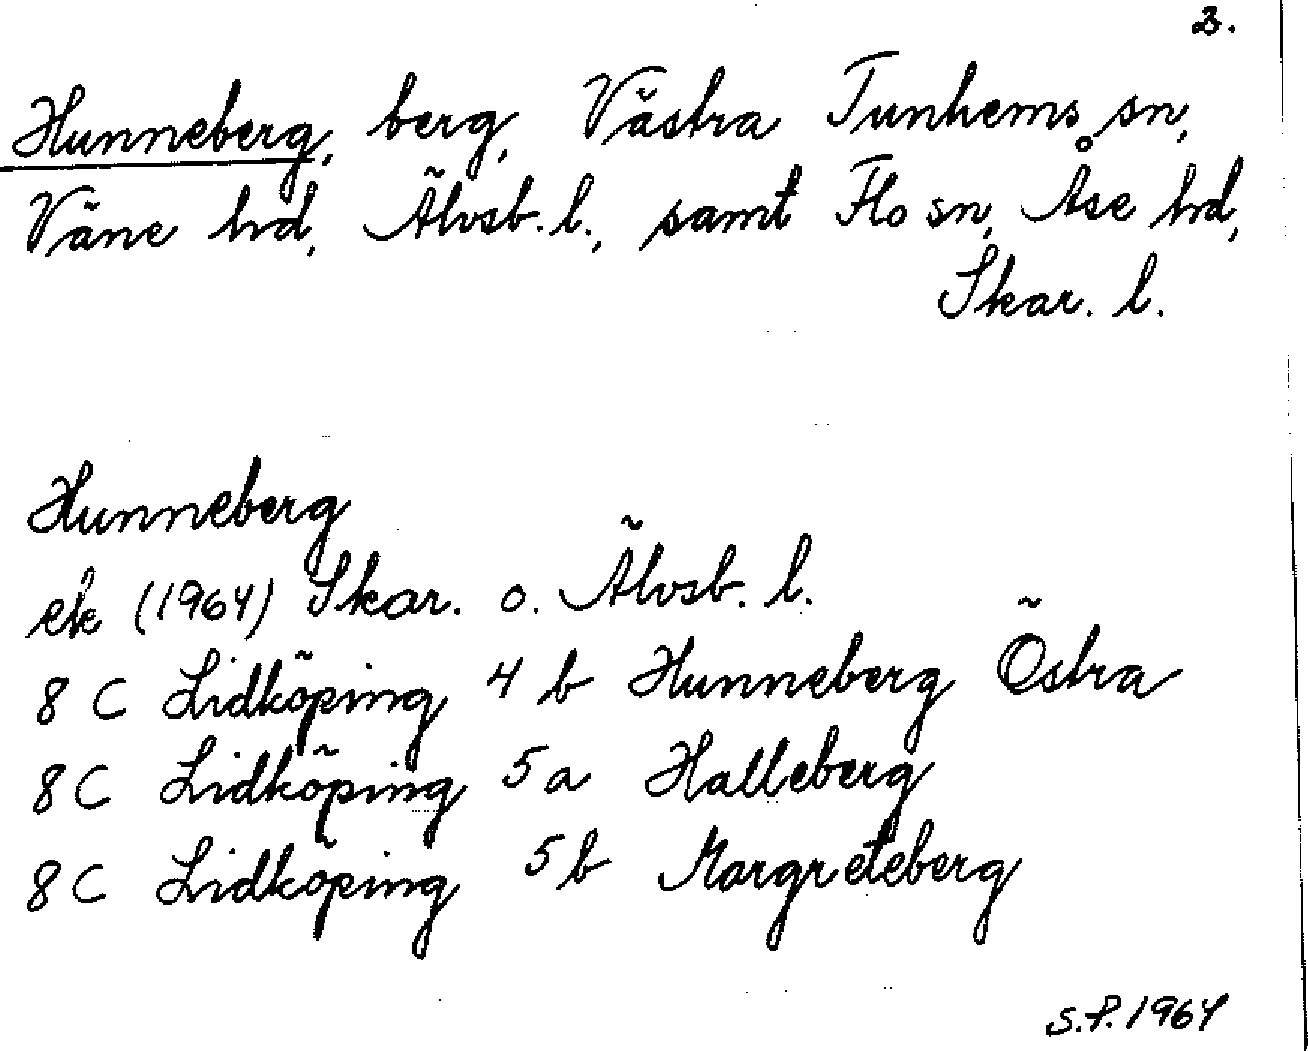 3.
Hunneberg, berg, Västra Tunhems sn,
Väne hd, Älvsb. l., samt Flo sn, Åse hd,
Skar. l.
Hunneberg
ek (1964) Skar. o. Älvsb. l.
8 C Lidköping 4 b Hunneberg Östra
8 C Lidköping 5 a Halleberg
8 C Lidköping 5 b Margreteberg
S.P. 1964